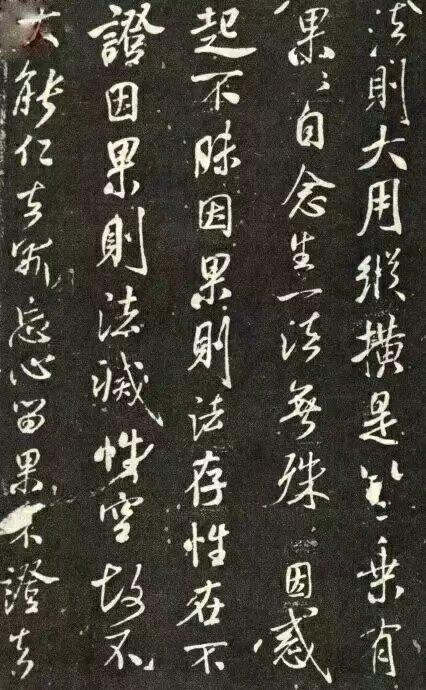 法則大用縱橫是乘有
果〻自念生一法無殊因感
起不昧因果則法存性在不
證因果則法滅性空故不
大能仁者忘心留果不證者